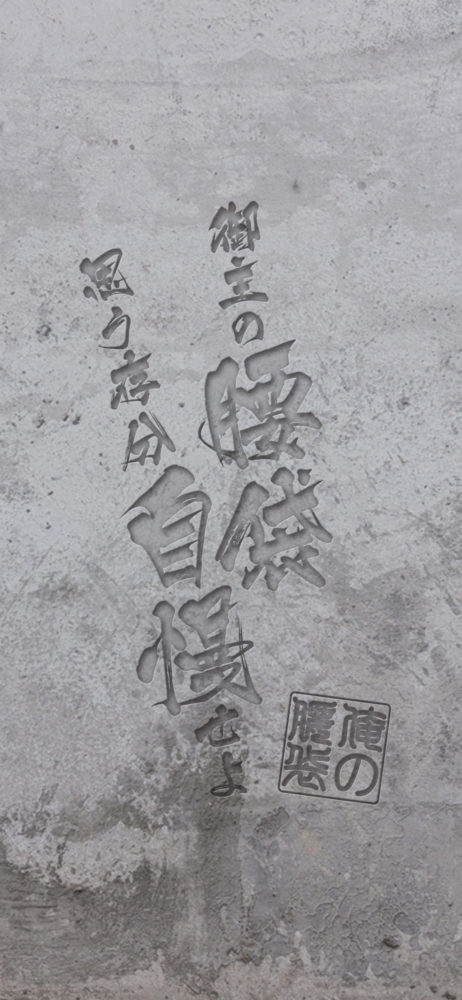 御主の腰袋
思う存分自慢せよ
俺の
腰袋